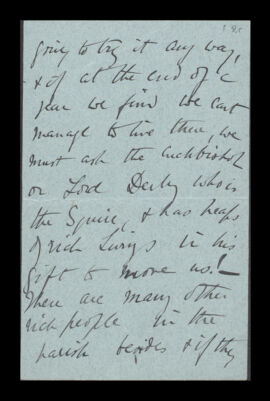 going to try it any way,
& if at the end of a
year we find we cant
manage to live there, we
must ask the Archbishop
or Lord Derby who is
the Squire, & has heaps
of rich Livings in his
gift to move us! —
There are many other
rich people in the
parish besides & if they